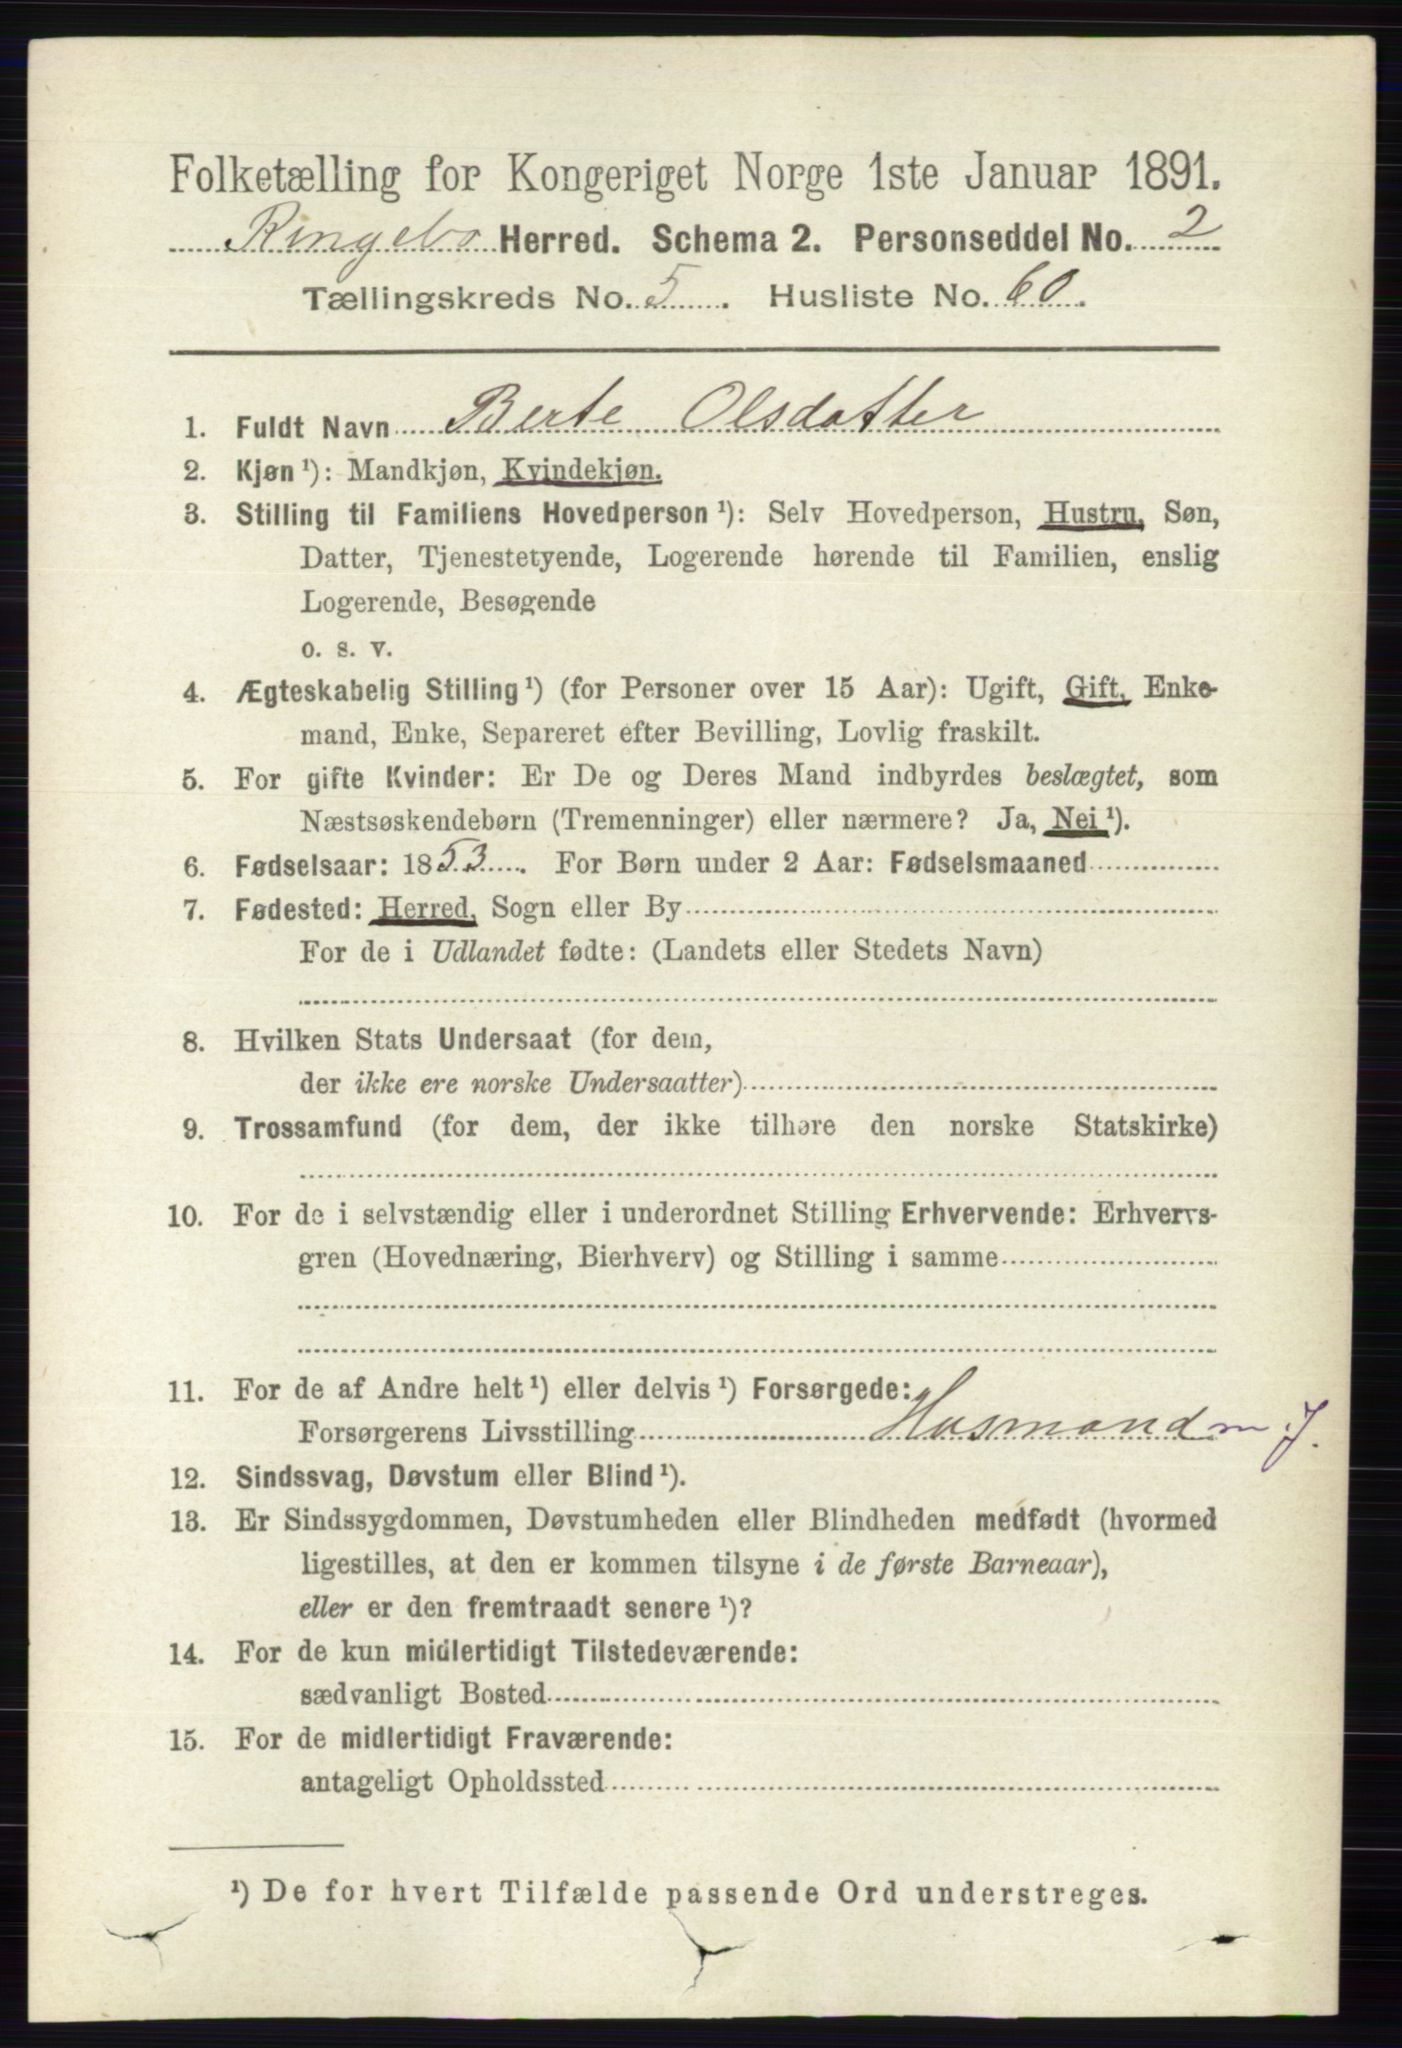 Folketælling for Kongeriget Norge 1ste Januar 1891.
Ringebo Herred. Schema 2. Personseddel No. 2
Tællingskreds No. 5. Husliste No. 60.
1. Fuldt Navn Berte Olsdatter
2. Kjøn ¹): Mandkjøn, Kvindekjøn.
3. Stilling til Familiens Hovedperson ¹): Selv Hovedperson, Hustru, Søn,
Datter, Tjenestetyende, Logerende hørende til Familien, enslig
Logerende, Besøgende
o. s. v.
4. Ægteskabelig Stilling ¹) (for Personer over 15 Aar): Ugift, Gift, Enke-
mand, Enke, Separeret efter Bevilling, Lovlig fraskilt.
5. For gifte Kvinder: Er De og Deres Mand indbyrdes beslægtet, som
Næstsøskendebørn (Tremenninger) eller nærmere? Ja, Nei ¹).
6. Fødselsaar: 1853. For Børn under 2 Aar: Fødselsmaaned
7. Fødested: Herred, Sogn eller By
For de i Udlandet fødte: (Landets eller Stedets Navn)
8. Hvilken Stats Undersaat (for dem,
der ikke ere norske Undersaatter)
9. Trossamfund (for dem, der ikke tilhøre den norske Statskirke)
10. For de i selvstændig eller i underordnet Stilling Erhvervende: Erhvervs-
gren (Hovednæring, Bierhverv) og Stilling i samme
11. For de af Andre helt ¹) eller delvis ¹) Forsørgede:
Forsørgerens Livsstilling Husmand m. J.
12. Sindssvag, Døvstum eller Blind ¹).
13. Er Sindssygdommen, Døvstumheden eller Blindheden medfødt (hvormed
ligestilles, at den er kommen tilsyne i de første Barneaar),
eller er den fremtraadt senere ¹)?
14. For de kun midlertidigt Tilstedeværende:
sædvanligt Bosted
15. For de midlertidigt Fraværende:
antageligt Opholdssted
¹) De for hvert Tilfælde passende Ord understreges.